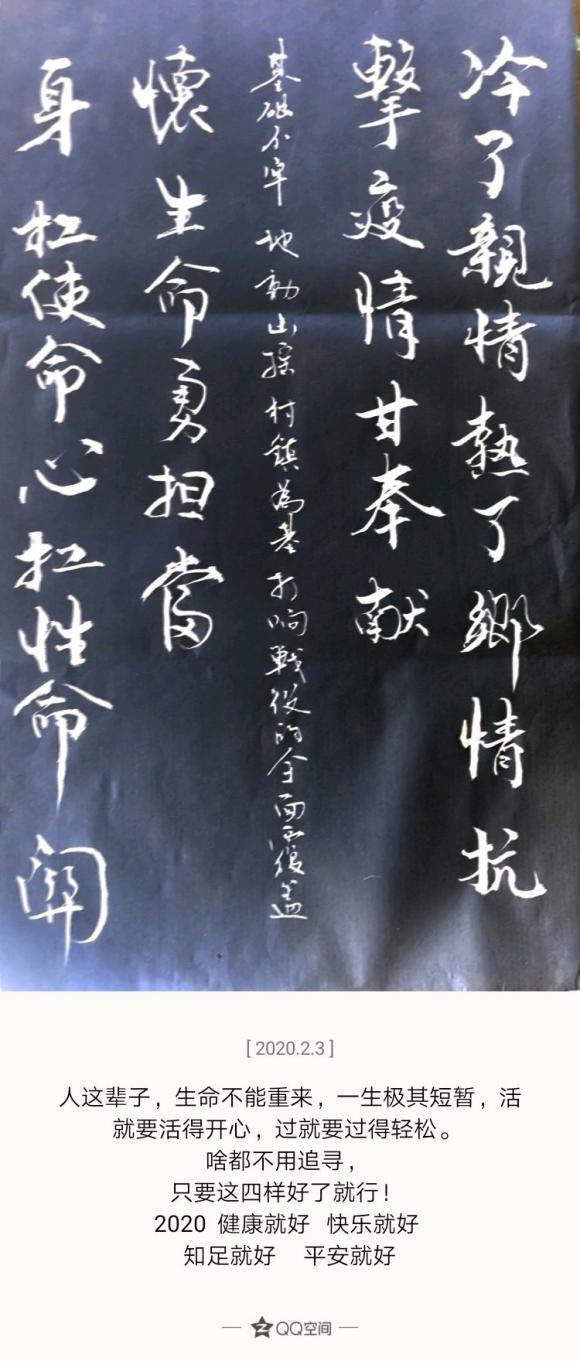 冷了親情熱了鄉情抗
擊疫情甘奉献
基础不牢 地動山摇 村鎮為基 打响戰役的全面覆盖
身扛使命心扛性命關
懷生命勇担當
[ 2020.2.3 ]
人这辈子，生命不能重来，一生极其短暂，活
就要活得开心，过就要过得轻松。
啥都不用追寻，
只要这四样好了就行！
2020 健康就好 快乐就好
知足就好 平安就好
QQ空间